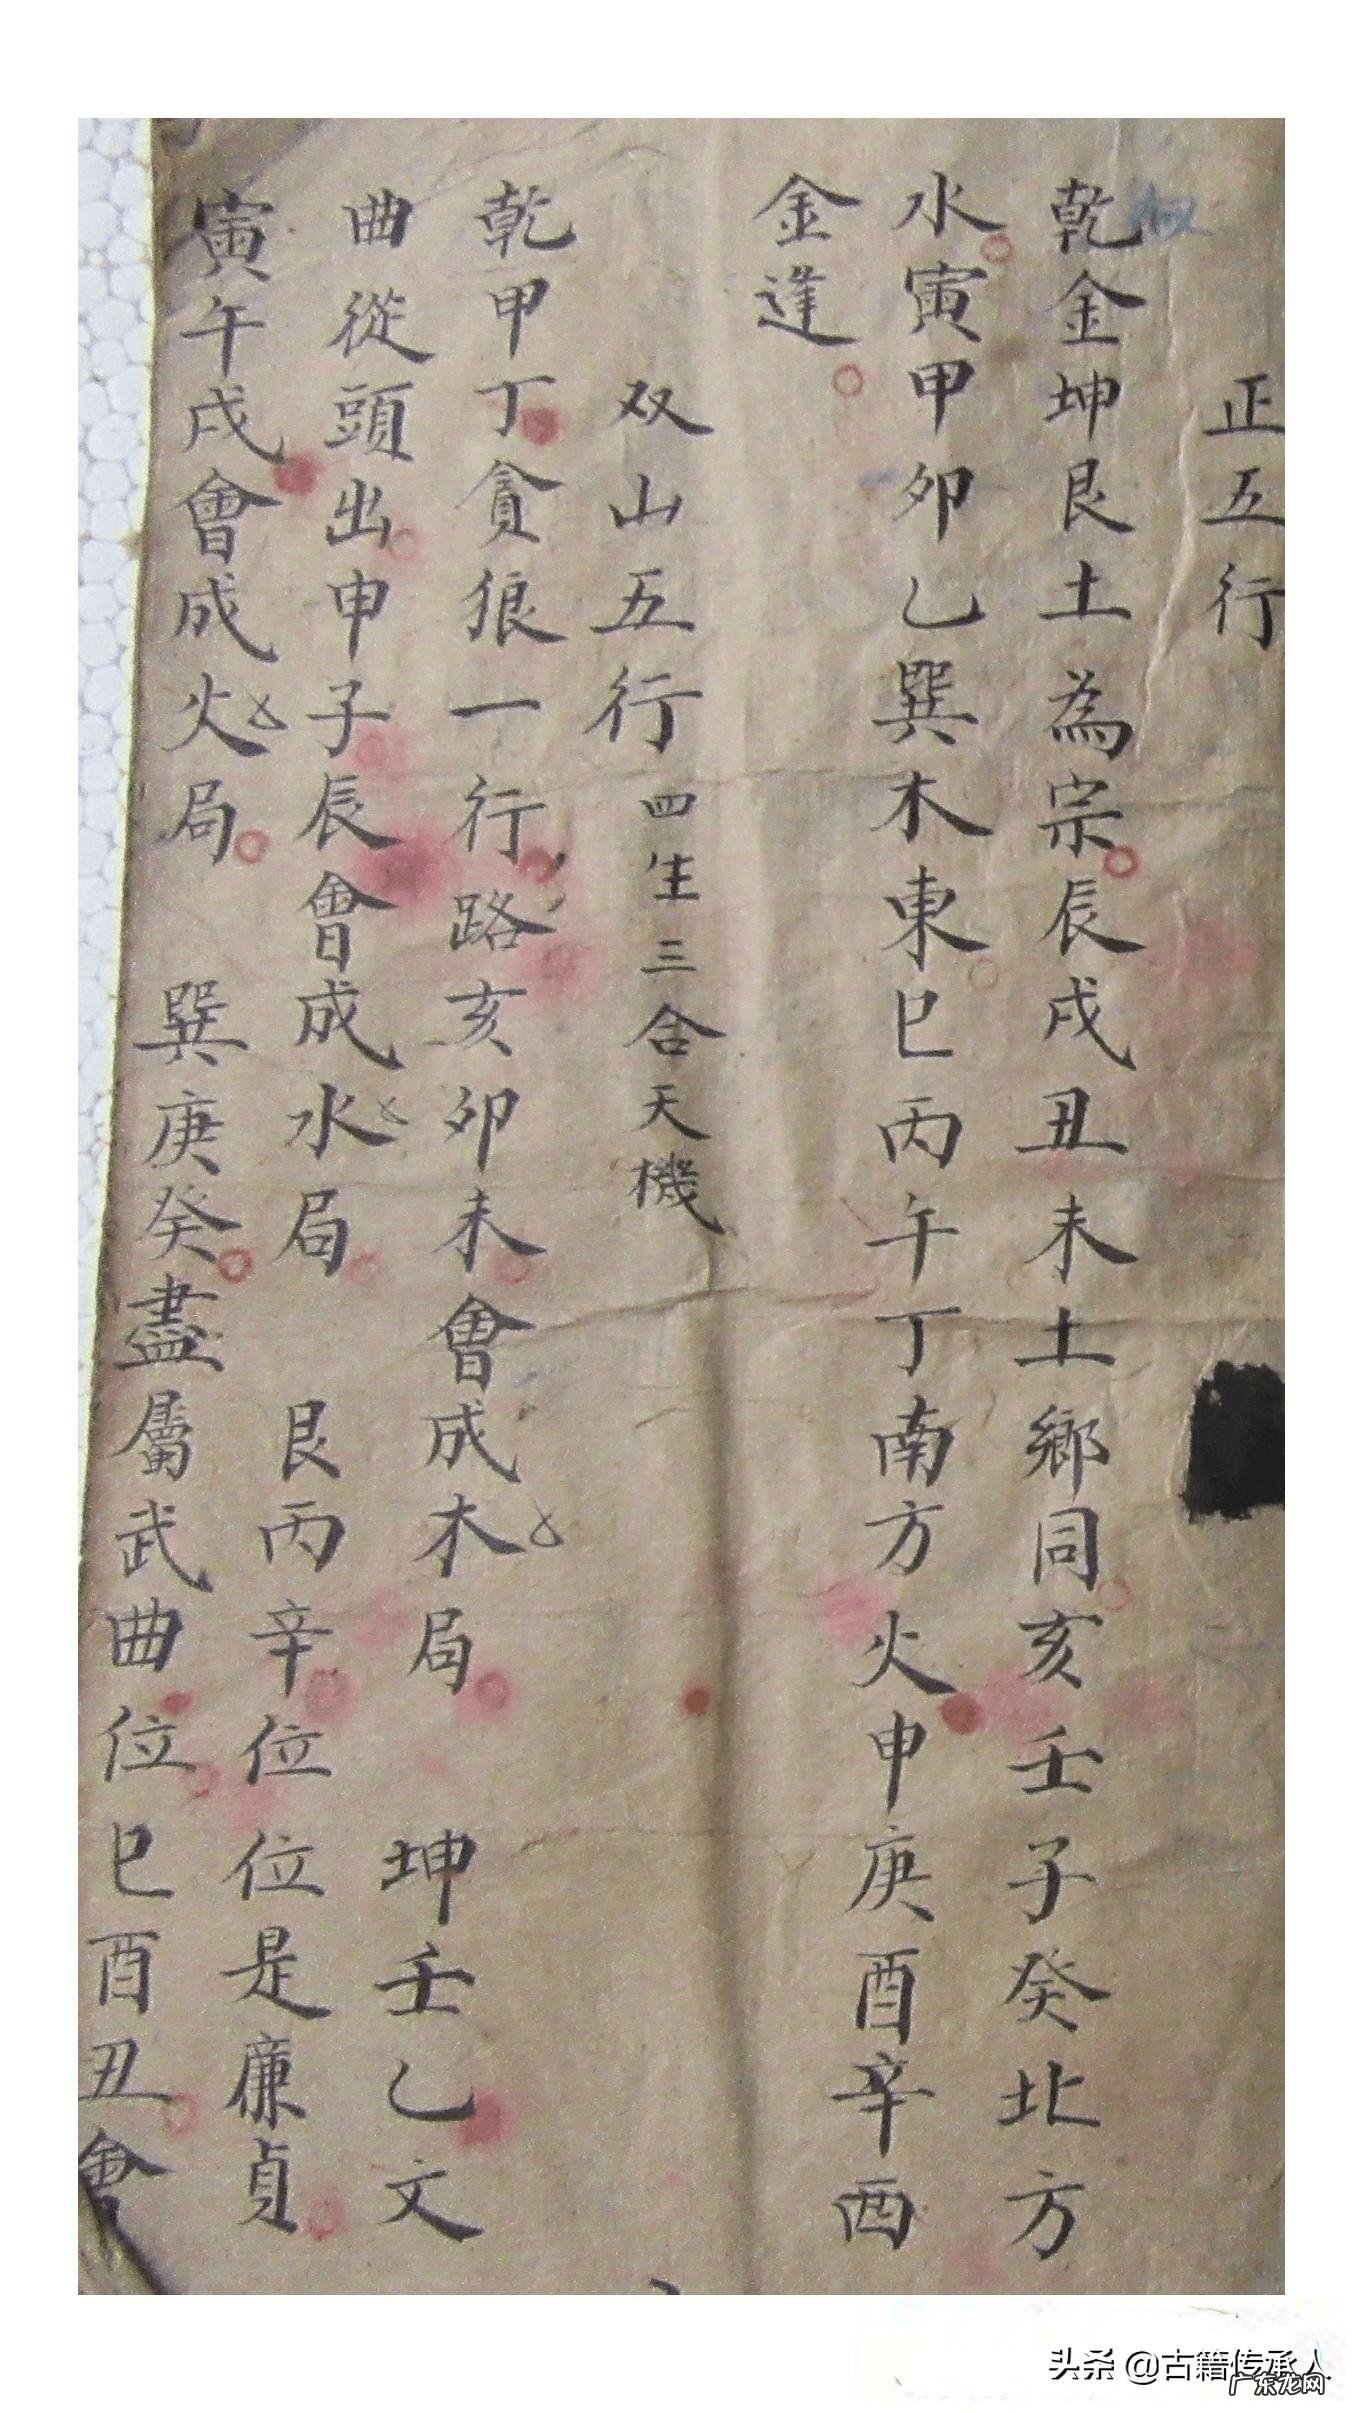 正五行
乾金坤艮土為宗辰戌丑未土鄉同亥壬子癸北方
水寅甲卯乙巽木東巳丙午丁南方火申庚酉辛西
金逢
双山五行四生三合天機
乾甲丁貪狼一行路亥卯未會成木局 坤壬乙文
曲從頭出申子辰會成水局 艮丙辛位位是廉貞
寅午戌會成火局 巽庚癸盡屬武曲位巳酉丑會
头条 @古籍传承人
广东龙网